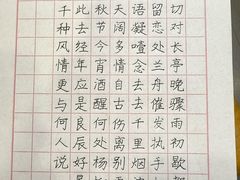 切对长亭晚骤雨初歇都
留恋处兰舟催发执手
语凝噎念去去千里烟波
天阔多情自古伤离别
秋节今宵酒醒何处杨
此去经年应是良辰好
千种风情更与何人说